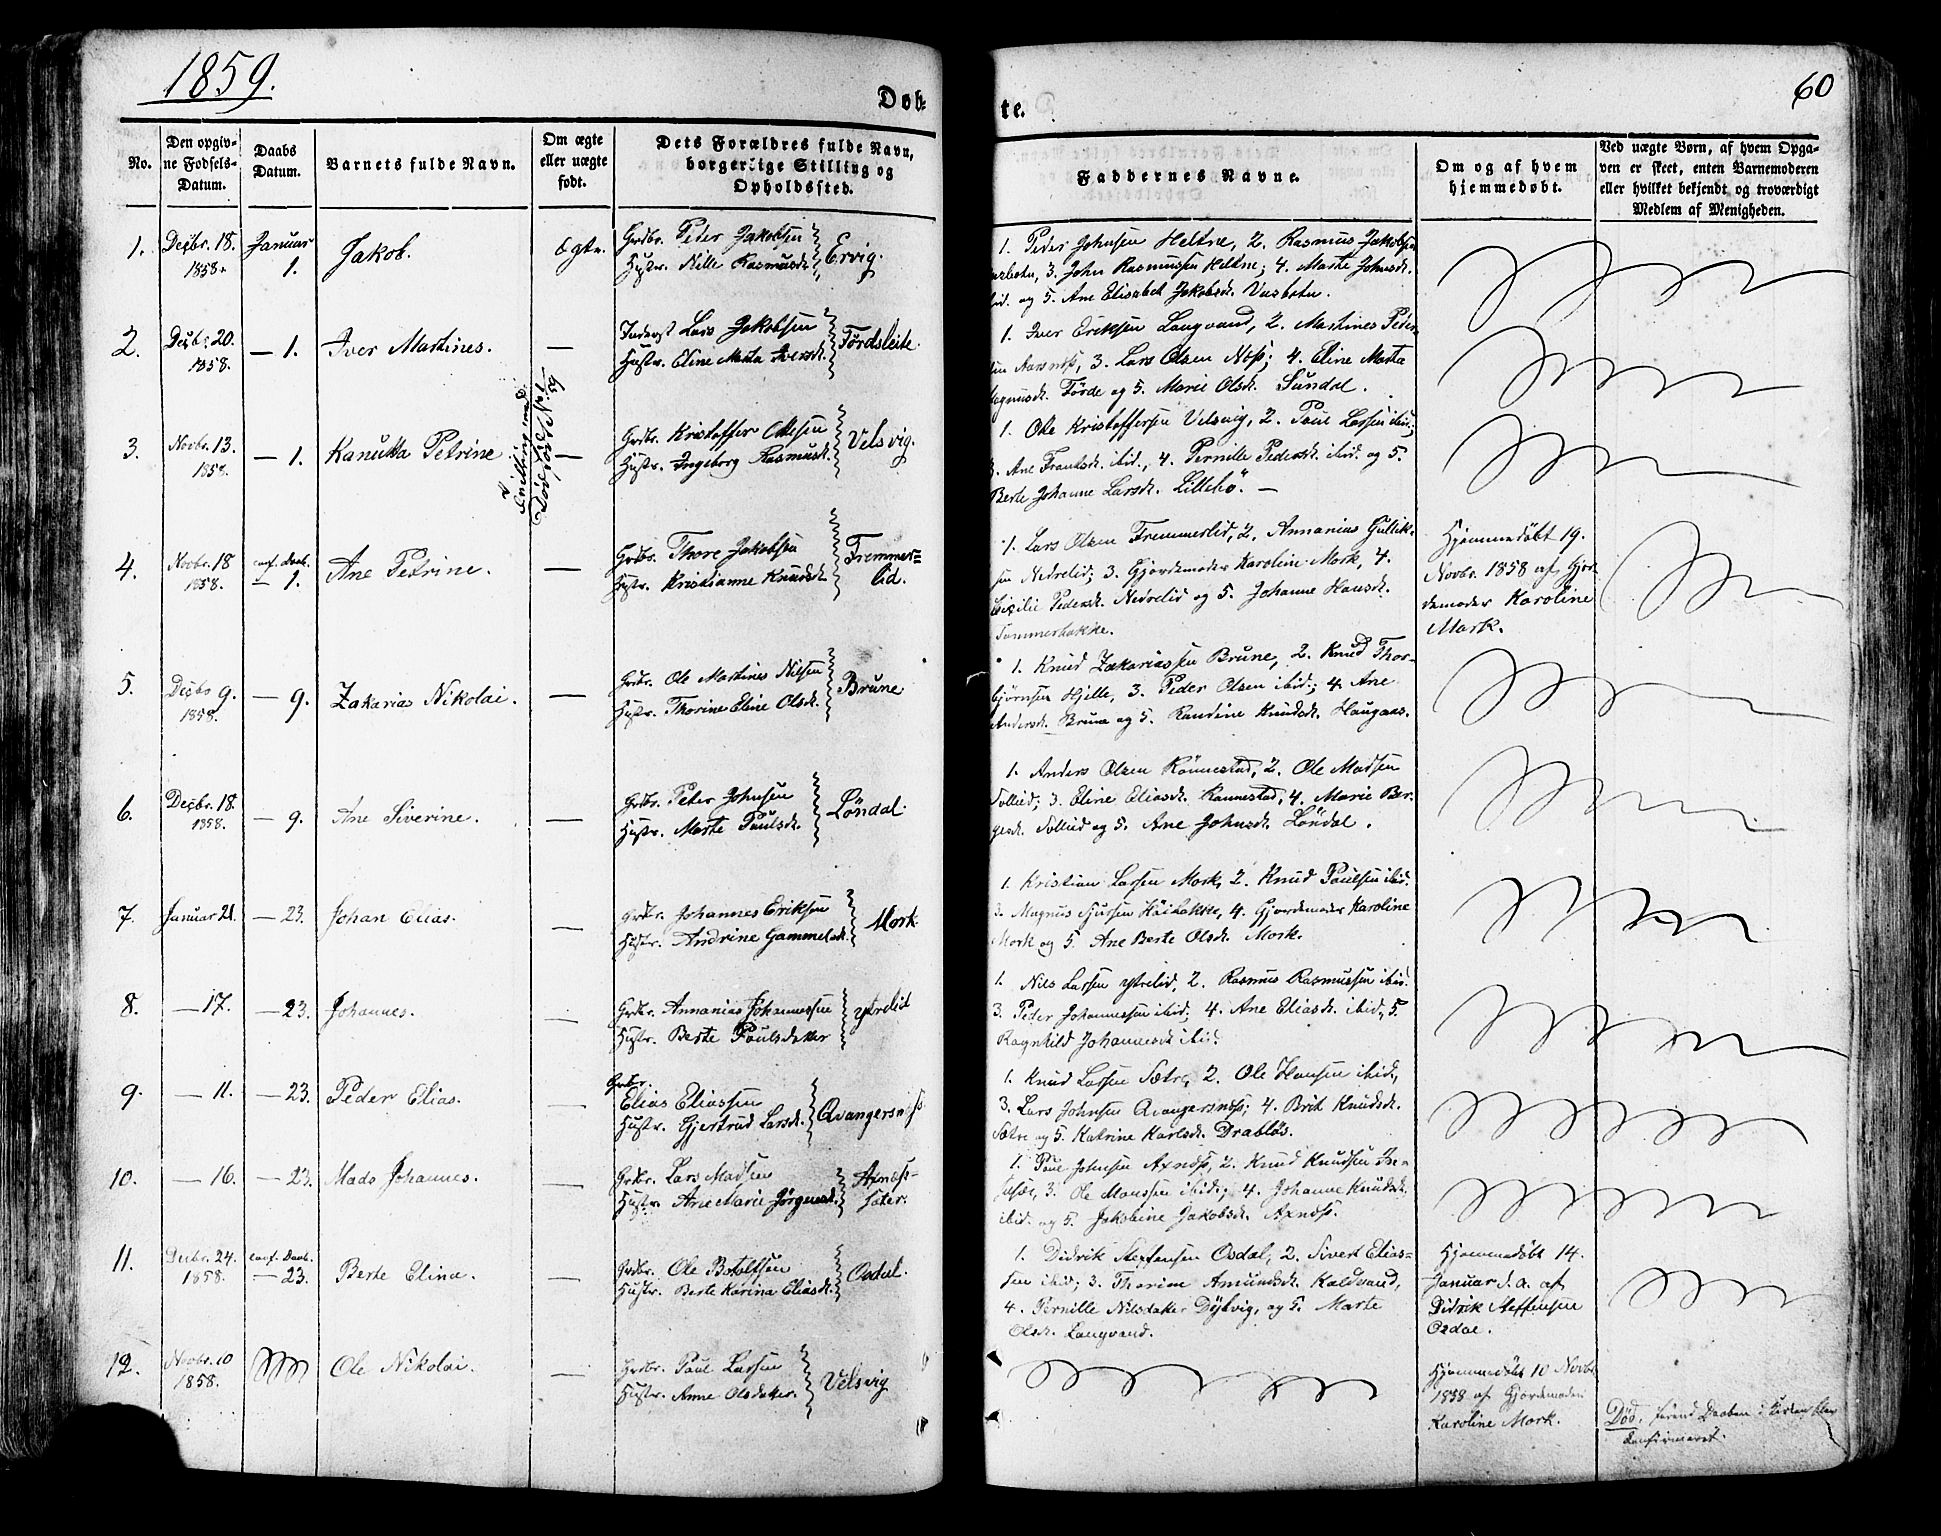 1859.
60
Døb-
te.
No.
Den opgiv-
ne Fødsels-
Datum.
Daabs
Datum.
Barnets fulde Navn.
Om ægte
eller uægte
født.
Dets Forældres fulde Navn,
borgerlige Stilling og
Opholdssted.
Faddernes Navne.
Om og af hvem
hjemmedøbt.
Ved uægte Børn, af hvem Opga-
ven er skeet, enten Barnemoderen
eller hvilket bekjendt og troværdigt
Medlem af Menigheden.
1. Decbr. 18. 1858. Januar 1. Jakob. Ægte.
Grdbr. Peder Jakobsen
Hustr. Nille Rasmusdr. Ervig.
1. Peder Johnsen Heltne, 2. Rasmus Jakobsen
3. John Rasmussen Heltne; 4. Marte Johnsdr.
ibid. og 5. Ane Elisabeth Jakobsdr. Vasbotn.
2. Decbr. 20. 1858. — 1. Iver Martines. —
Inderst Lars Jakobsen
Hustr. Eline Marta Iversdr. Førdsleite
1. Iver Eriksen Langvand, 2. Martines Peder-
sen Aarsnæs, 3. Lars Olsen Næss; 4. Eline Marta
Magnusdr. Førde og 5. Marie Olsdr. Sundal.
3. Novbr. 13. 1858. — 1. Kanutta Petrine —
Tvilling med
Grdbr. Kristoffer Ottesen
Hustr. Ingeborg Rasmusdr. Velsvig.
1. Ole Kristoffersen Velsvig, 2. Paul Larsen ibid;
3. Ane Frantsdr. ibid., 4. Pernille Pedersdr. ibid. og 5.
Berte Johanne Larsdr. Lillebö. —
4. Novbr. 18 1858. conf. Daab. — 1. Ane Petrine. —
Grdbr. Thore Jakobsen
Hustr. Kristianne Knudsdr. Fremmer-
lid.
1. Lars Olsen Fremmerlid, 2. Annanias Gullik-
sen Nedrelid; 3. Gjordemoder Karoline Mork, 4.
Cicilie Pedersdr. Nedrelid og 5. Johanne Hansdr.
Sommerbakke.
Hjemmedøbt 19.
Novbr. 1858 af Gjor-
demoder Karoline
Mork.
5. Decbr 9. 1858. — 9. Zakarias Nikolai. —
Grdbr. Ole Martines Nilsen
Hustr. Thorine Eline Olsdr. Brune
1. Knud Zakariassen Brune, 2. Knud Thor-
bjørnsen Hjelle, 3. Peder Olsen ibid; 4. Ane
Andersdr. Brune og 5. Randine Knudsdr. Haugaas.
6. Decbr. 18. 1858. — 9. Ane Siverine. —
Grdbr. Peter Johnsen
Hustr. Marte Paulsdr. Løndal.
1. Anders Olsen Rönnestad, 2. Ole Madsen
Sollied; 3. Eline Eliasdr. Rønnestad, 4. Marie Ber-
gesdr. Sollied og 5. Ane Johnsdr. Løndal.
7. Januar 21. — 23. Johan Elias. —
Grdbr. Johannes Eriksen
Hustr. Andrine Gammelsdr. Mork.
1. Kristian Larsen Mork, 2. Knud Paulsen ibid.
3. Magnus Sjursen Höibakke, 4. Gjordemoder Karoline
Mork og 5. Ane Berte Olsdr. Mork.
8. — 17. — 23. Johannes. —
Grdbr. Annanias Johannessen
Hustr. Berte Paulsdatter Ytrelid
1. Nils Larsen Ytrelid, 2. Rasmus Rasmussen ibid.
3. Peder Johannessen ibid; 4. Ane Eliasdr. ibid., 5.
Ragnhild Johannesdr ibid.
9. — 11. — 23. Peder Elias. —
Grdbr.
Elias Eliassen
Hustr. Gjertrud Larsdr. Qvangersnæs.
1. Knud Larsen Sætre, 2. Ole Hansen ibid.,
3. Lars Johnsen Qvangersnæs; 4. Brit Knudsdr.
Sætre og 5. Katrine Karlsdr. Drabløs.
10. — 16. — 23. Mads Johannes. —
Grdbr. Lars Madsen
Hustr. Ane Marie Jørgensdr. Axnæs-
sæter.
1. Paul Johnsen Axnæs, 2. Knud Knudsen
3. Ole Monssen ibid; 4. Johanne Knudsdr.
ibid. og 5. Jakobine Jakobsdr. Axnæs.
11. Decbr. 24. 1858. conf. Daab. — 23. Berte Elina. —
Grdbr. Ole Botolfsen
Hustr. Berte Karina Eliasdr. Osdal.
1. Didrik Steffensen Osdal, 2. Sivert Elias-
sen ibid; 3. Thorine Amundsdr. Koldvand,
4. Pernille Nilsdatter Dybvig, og 5. Marte
Olsdr. Langvand.
Hjemmedøbt 14.
Januar d. a. af
Didrik Steffensen
Osdal.
12. Novbr. 10 1858. Ole Nikolai. —
Grdbr. Paul Larsen
Hustr. Anne Olsdatter. Velsvig
Hjemmedøbt 10 Novbr
1858 af Gjordemoder
Karoline Mork.
Død, førend Daaben i Kirken blev
Konfirmeret.